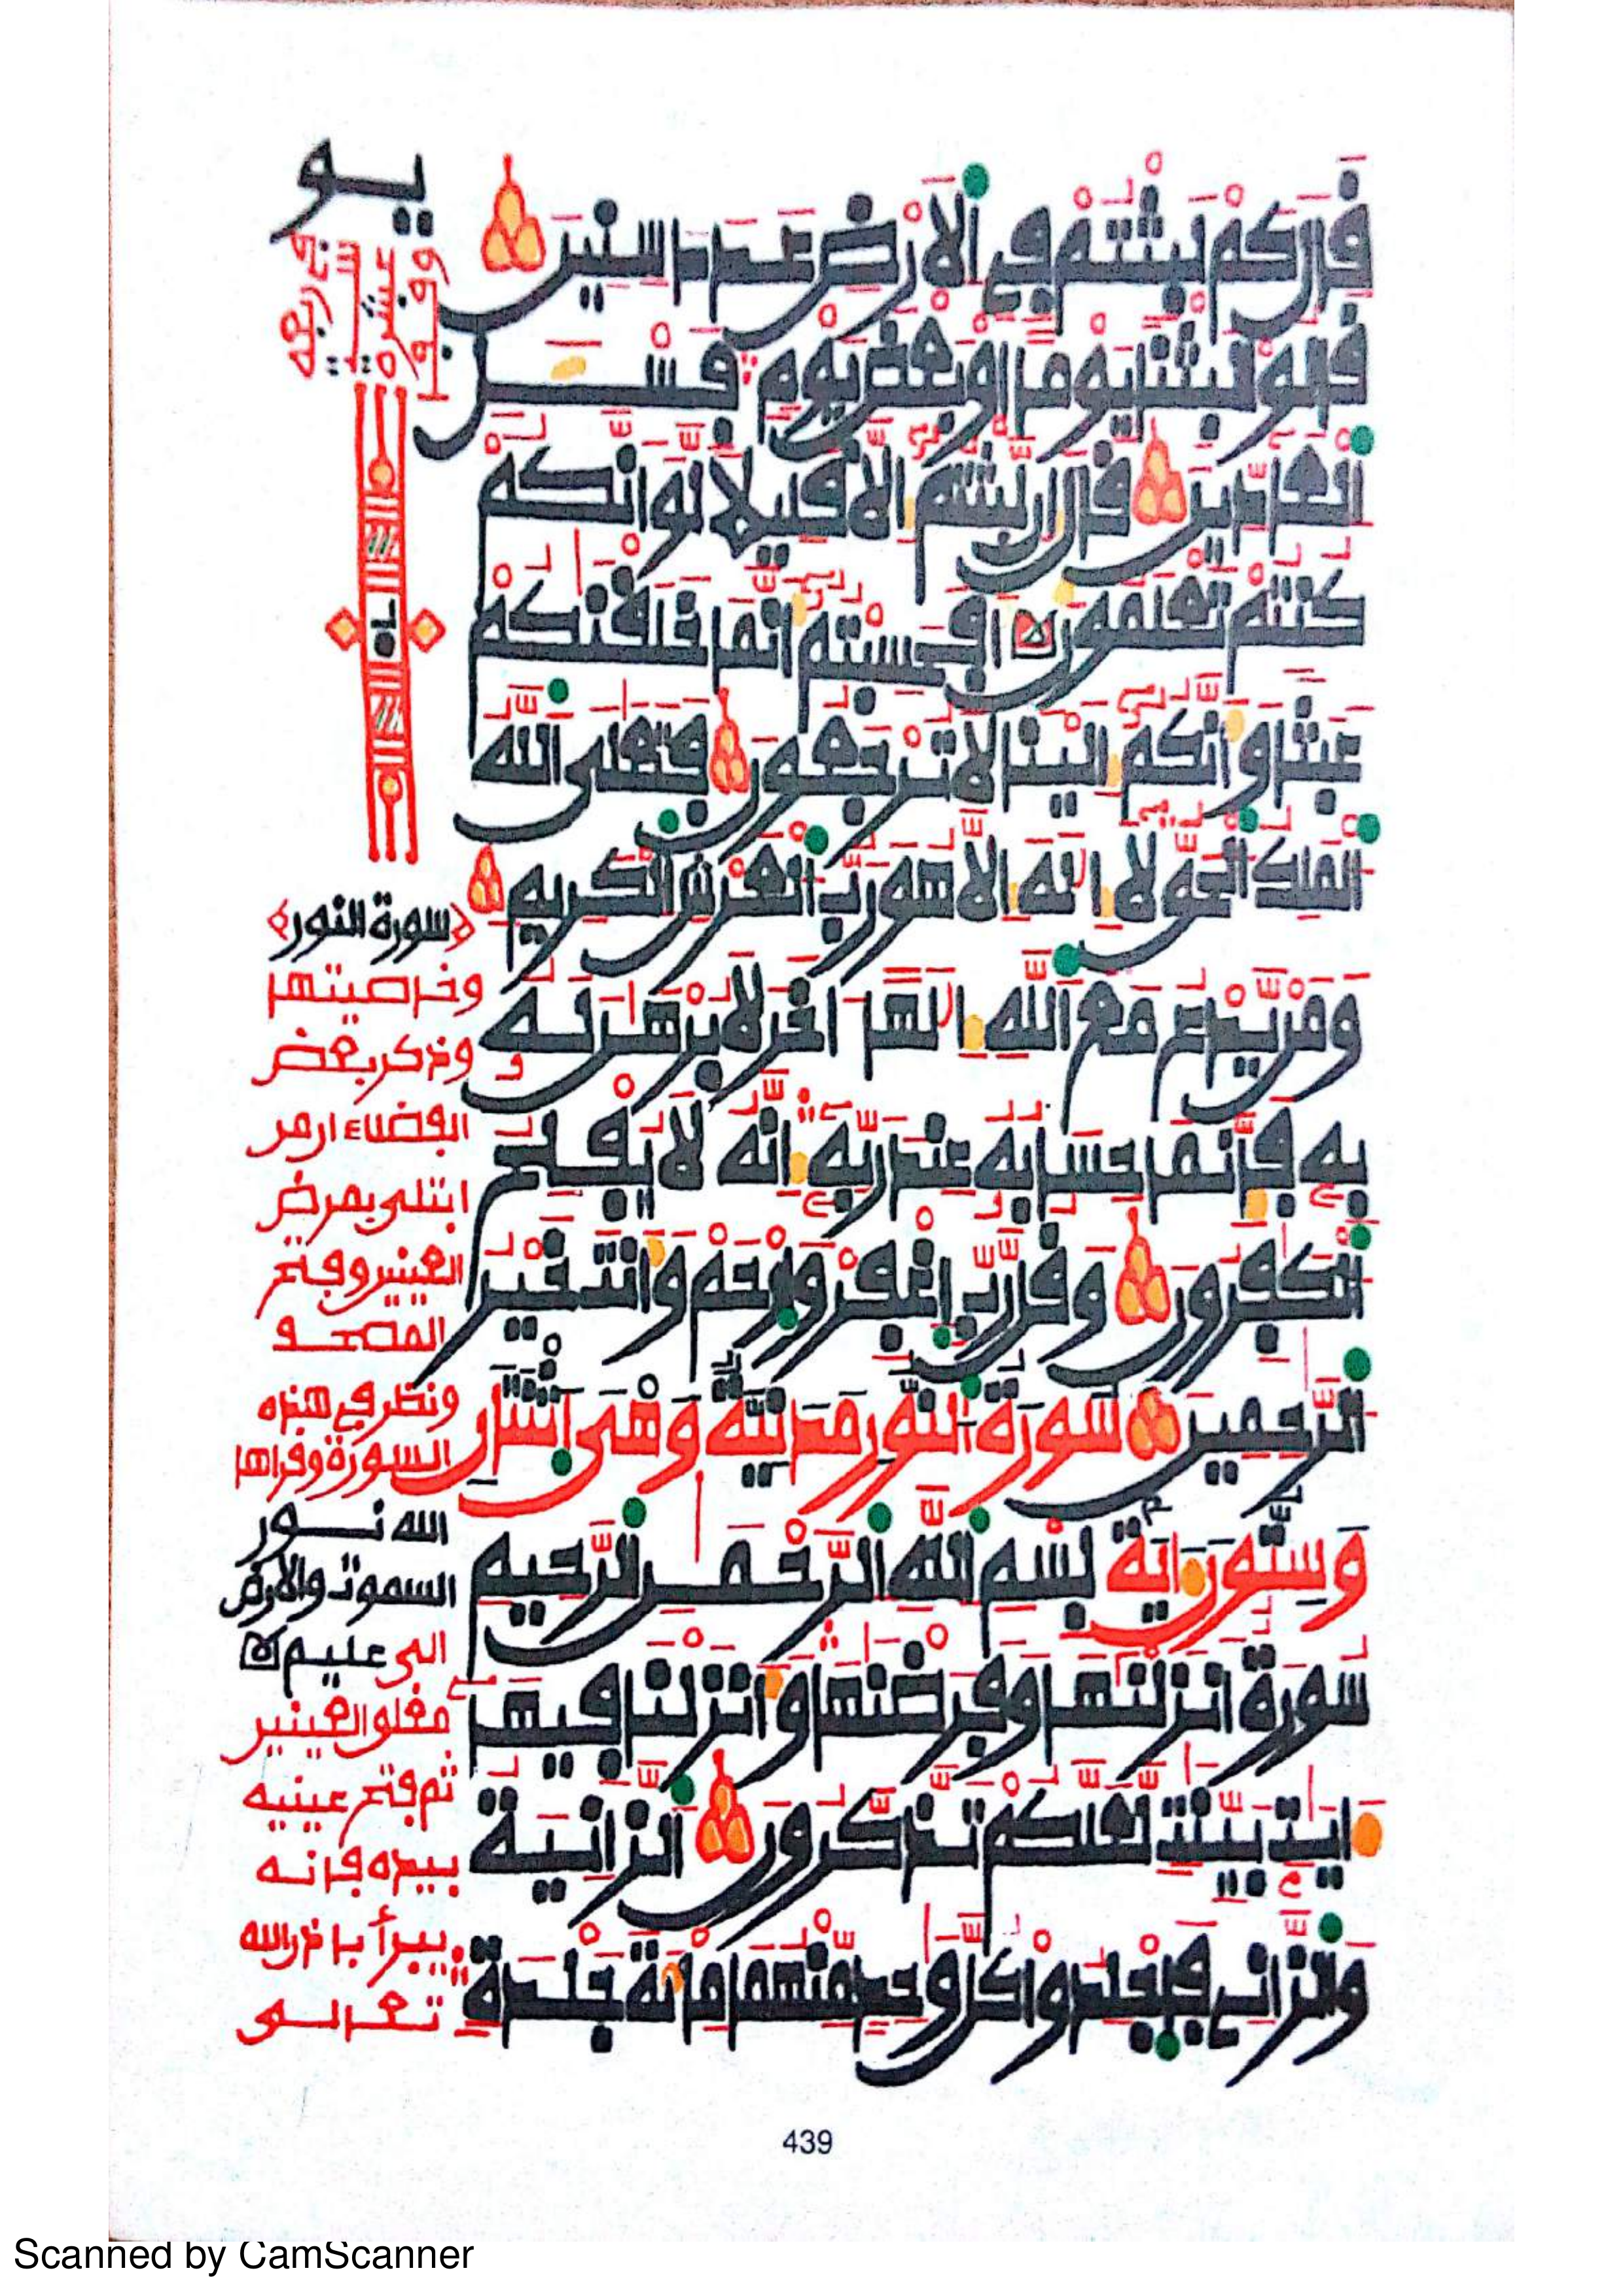 قَٰلَ كَمْ لَبِثْتُمْ فِي اَ۬لَارْضِ عَدَدَ سِنِينَ
قَالُواْ لَبِثْنَا يَوْماً اَوْ بَعْضَ يَوْمٖ فَسْـَٔلِ
اِ۬لْعَآدِّينَ قَٰلَ إِن لَّبِثْتُمُۥٓ إِلَّا قَلِيلاٗ لَّوَ اَنَّكُمْ
كُنتُمْ تَعْلَمُونَ أَفَحَسِبْتُمُۥٓ أَنَّمَا خَلَقْنَٰكُمْ
عَبَثاٗ وَأَنَّكُمُۥٓ إِلَيْنَا لَا تُرْجَعُونَ فَتَعَٰلَى اَ۬للَّهُ
اُ۬لْمَلِكُ اُ۬لْحَقُّ لَآ إِلَٰهَ إِلَّا هُوَ رَبُّ اُ۬لْعَرْشِ اِ۬لْكَرِيمِ
وَمَنْ يَّدْعُ مَعَ اَ۬للَّهِ إِلَٰهاً اٰخَرَ لَا بُرْهَٰنَ لَهُۥ
بِهِۦ فَإِنَّمَا حِسَابُهُۥ عِندَ رَبِّهِۦٓ إِنَّهُۥ لَا يُفْلِحُ
اُ۬لْكَٰفِرُونَ وَقُل رَّبِّ اِ۪غْفِرْ وَارْحَمْ وَأَنتَ خَيْرُ
اُ۬لرَّٰحِمِينَ سُورَةُ النُّورِ مَدَنِيَّةٌ وَهْيَ اثْنَتَانِ
وَسِتُّونَ ءَايَةً بِسْمِ اِ۬للَّهِ اِ۬لرَّحْمَٰنِ اِ۬لرَّحِيمِ
سُورَةٌ اَنزَلْنَٰهَا وَفَرَضْنَٰهَا وَأَنزَلْنَا فِيهَآ
ءَايَٰتِۢ بَيِّنَٰتٖ لَّعَلَّكُمْ تَذَّكَّرُونَ اَ۬لزَّانِيَةُ
وَالزَّانِي فَاجْلِدُواْ كُلَّ وَٰحِدٖ مِّنْهُمَا مِاْئَةَ جَلْدَةٖ
﴿سورة النور﴾
وخاصيتها
وذكر بعض
الفضلاء ان من
ابتلى بمرض
العينين وفتح
المصحف
ونظر في هذه
السورة وقرأها
الله نور
السموت والارض
الى عليم
مغلق العينين
ثم فتح عينيه
بيده فإنه
يبرأ بإذن الله
تعالى
439
Scanned by CamScanner